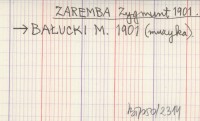 ZAREMBA Zygmunt 1901.
→ BAŁUCKI M. 1901 (muzyka).